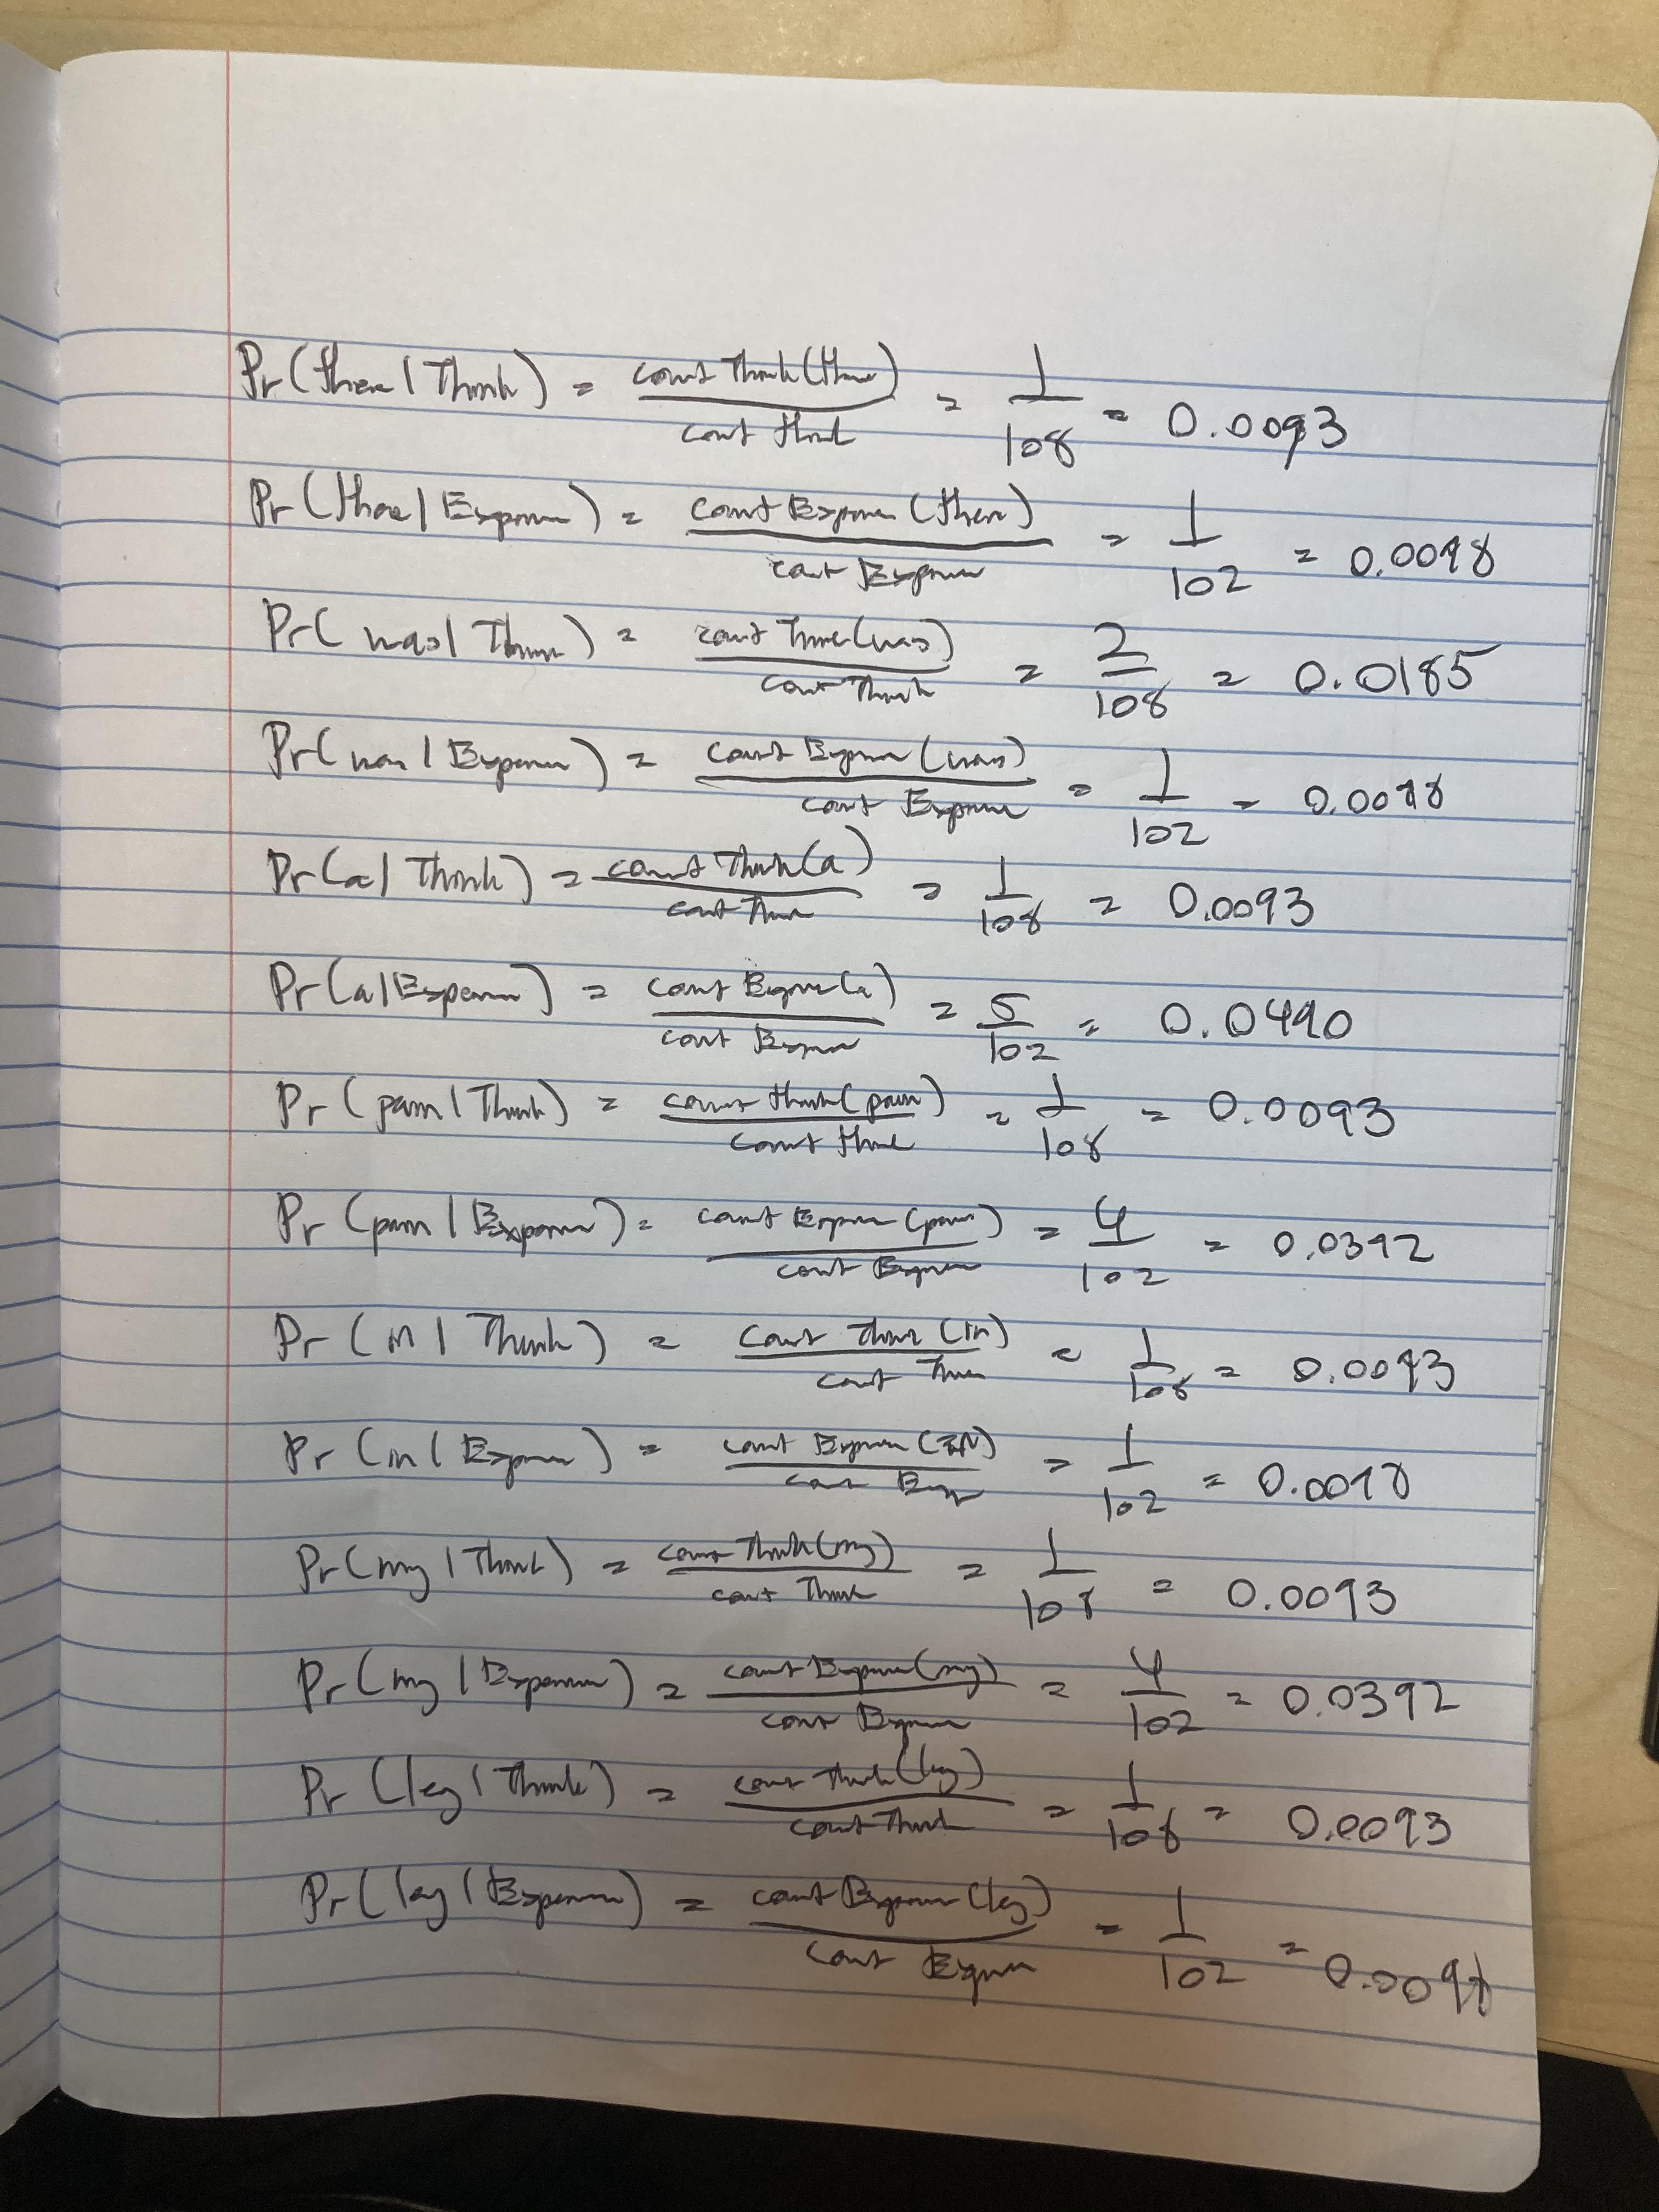 Pr(there | Think) = count Think(there) / count think = 1/108 = 0.0093
Pr(there | Experience) = count Experience(there) / count Experience = 1/102 = 0.0098
Pr(was | Think) = count Think(was) / count Think = 2/108 = 0.0185
Pr(was | Experience) = count Experience(was) / count Experience = 1/102 = 0.0098
Pr(a | Think) = count Think(a) / count Think = 1/108 = 0.0093
Pr(a | Experience) = count Experience(a) / count Experience = 5/102 = 0.0490
Pr(pain | Think) = count think(pain) / count think = 1/108 = 0.0093
Pr(pain | Experience) = count Experience(pain) / count Experience = 4/102 = 0.0392
Pr(in | Think) = count Think(in) / count Think = 1/108 = 0.0093
Pr(in | Experience) = count Experience(in) / count Exp = 1/102 = 0.0098
Pr(my | Think) = count Think(my) / count Think = 1/108 = 0.0093
Pr(my | Experience) = count Experience(my) / count Experience = 4/102 = 0.0392
Pr(leg | Think) = count Think(leg) / count Think = 1/108 = 0.0093
Pr(leg | Experience) = count Experience(leg) / count Experience = 1/102 = 0.0098